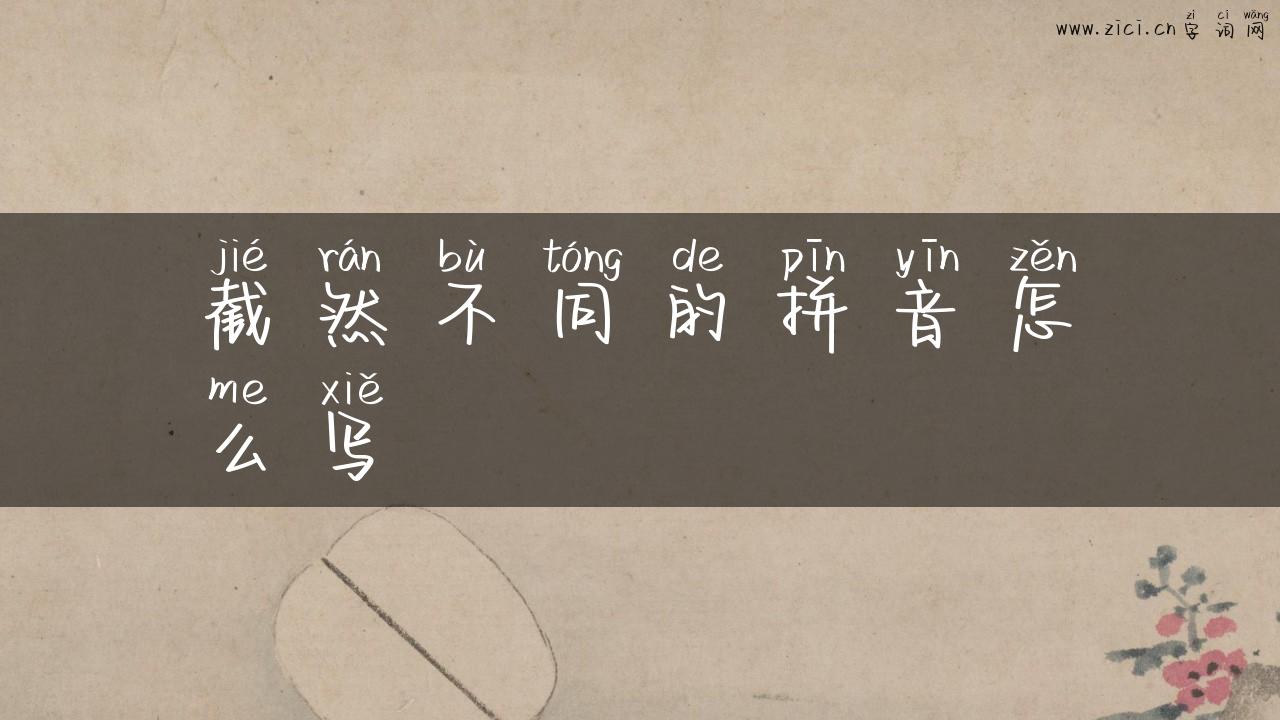 zì cí wǎng
www.zici.cn 字 词 网
jié rán bù tóng de pīn yīn zěn
截 然 不 同 的 拼 音 怎
me xiě
么 写